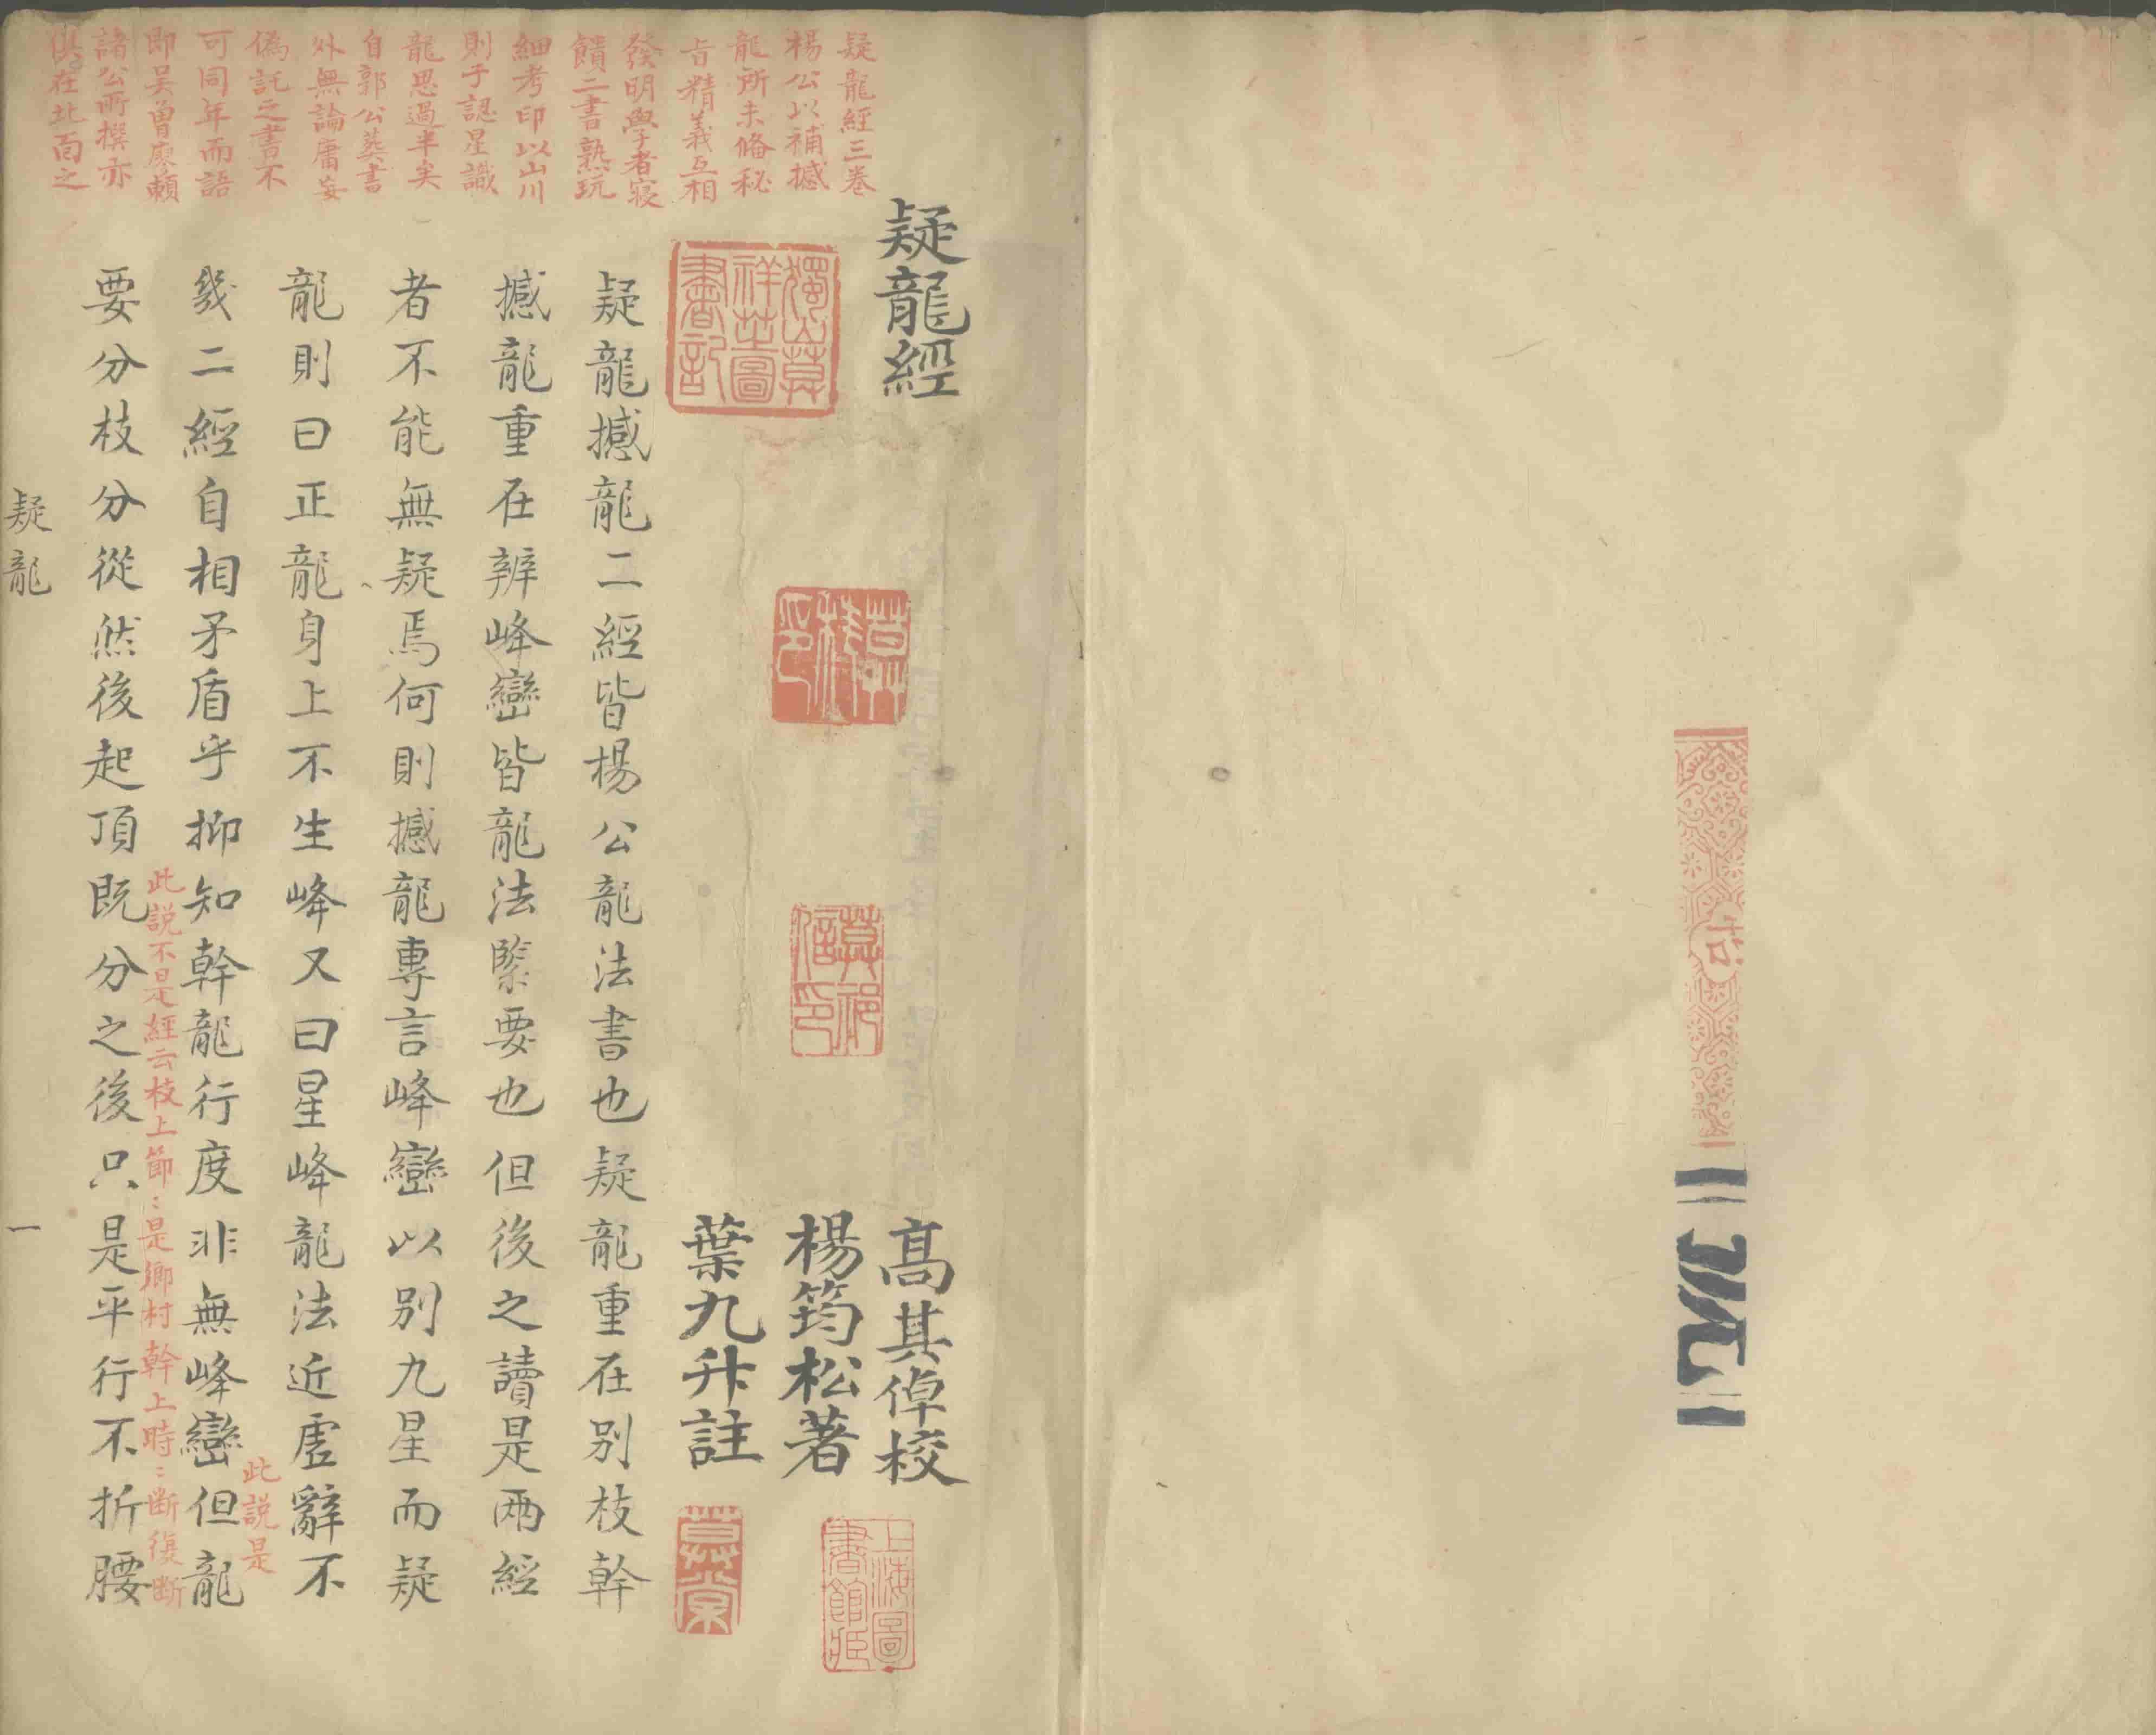 疑龍經
高其倬校
楊筠松著
葉九升註
疑龍經三卷
楊公以補撼
龍所未備秘
旨精義互相
發明學者寢
饋二書熟玩
細考印以山川
則于認星識
龍思過半矣
自郭公葬書
外無論庸妄
偽託之書不
可同年而語
即吴曾廖賴
諸公所撰亦
俱在北面之
疑龍撼龍二經皆楊公龍法書也疑龍重在别枝幹
撼龍重在辨峰巒皆龍法緊要也但後之讀是兩經
者不能無疑焉何則撼龍專言峰巒以别九星而疑
龍則曰正龍身上不生峰又曰星峰龍法近虛辭不
此説是
幾二經自相矛盾乎抑知幹龍行度非無峰巒但龍
此説不是經云枝上節〻是鄉村幹上時〻斷復斷
要分枝分從然後起頂既分之後只是平行不折腰
疑龍
一
獨山莫
祥芝圖
書記
莫棠
上海圖
書館藏